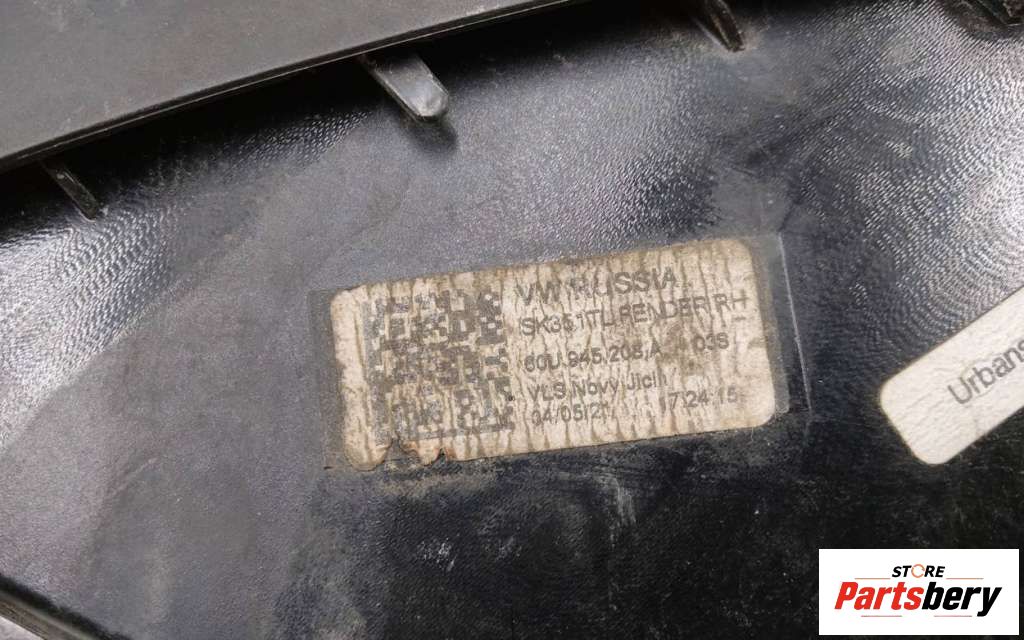 VW RUSSIA
SK351TL RENDER RH
60U.945.208.A 03S
VLS Novy Jicin
04/05/21 17:24:15
Urbans
STORE
Partsbery